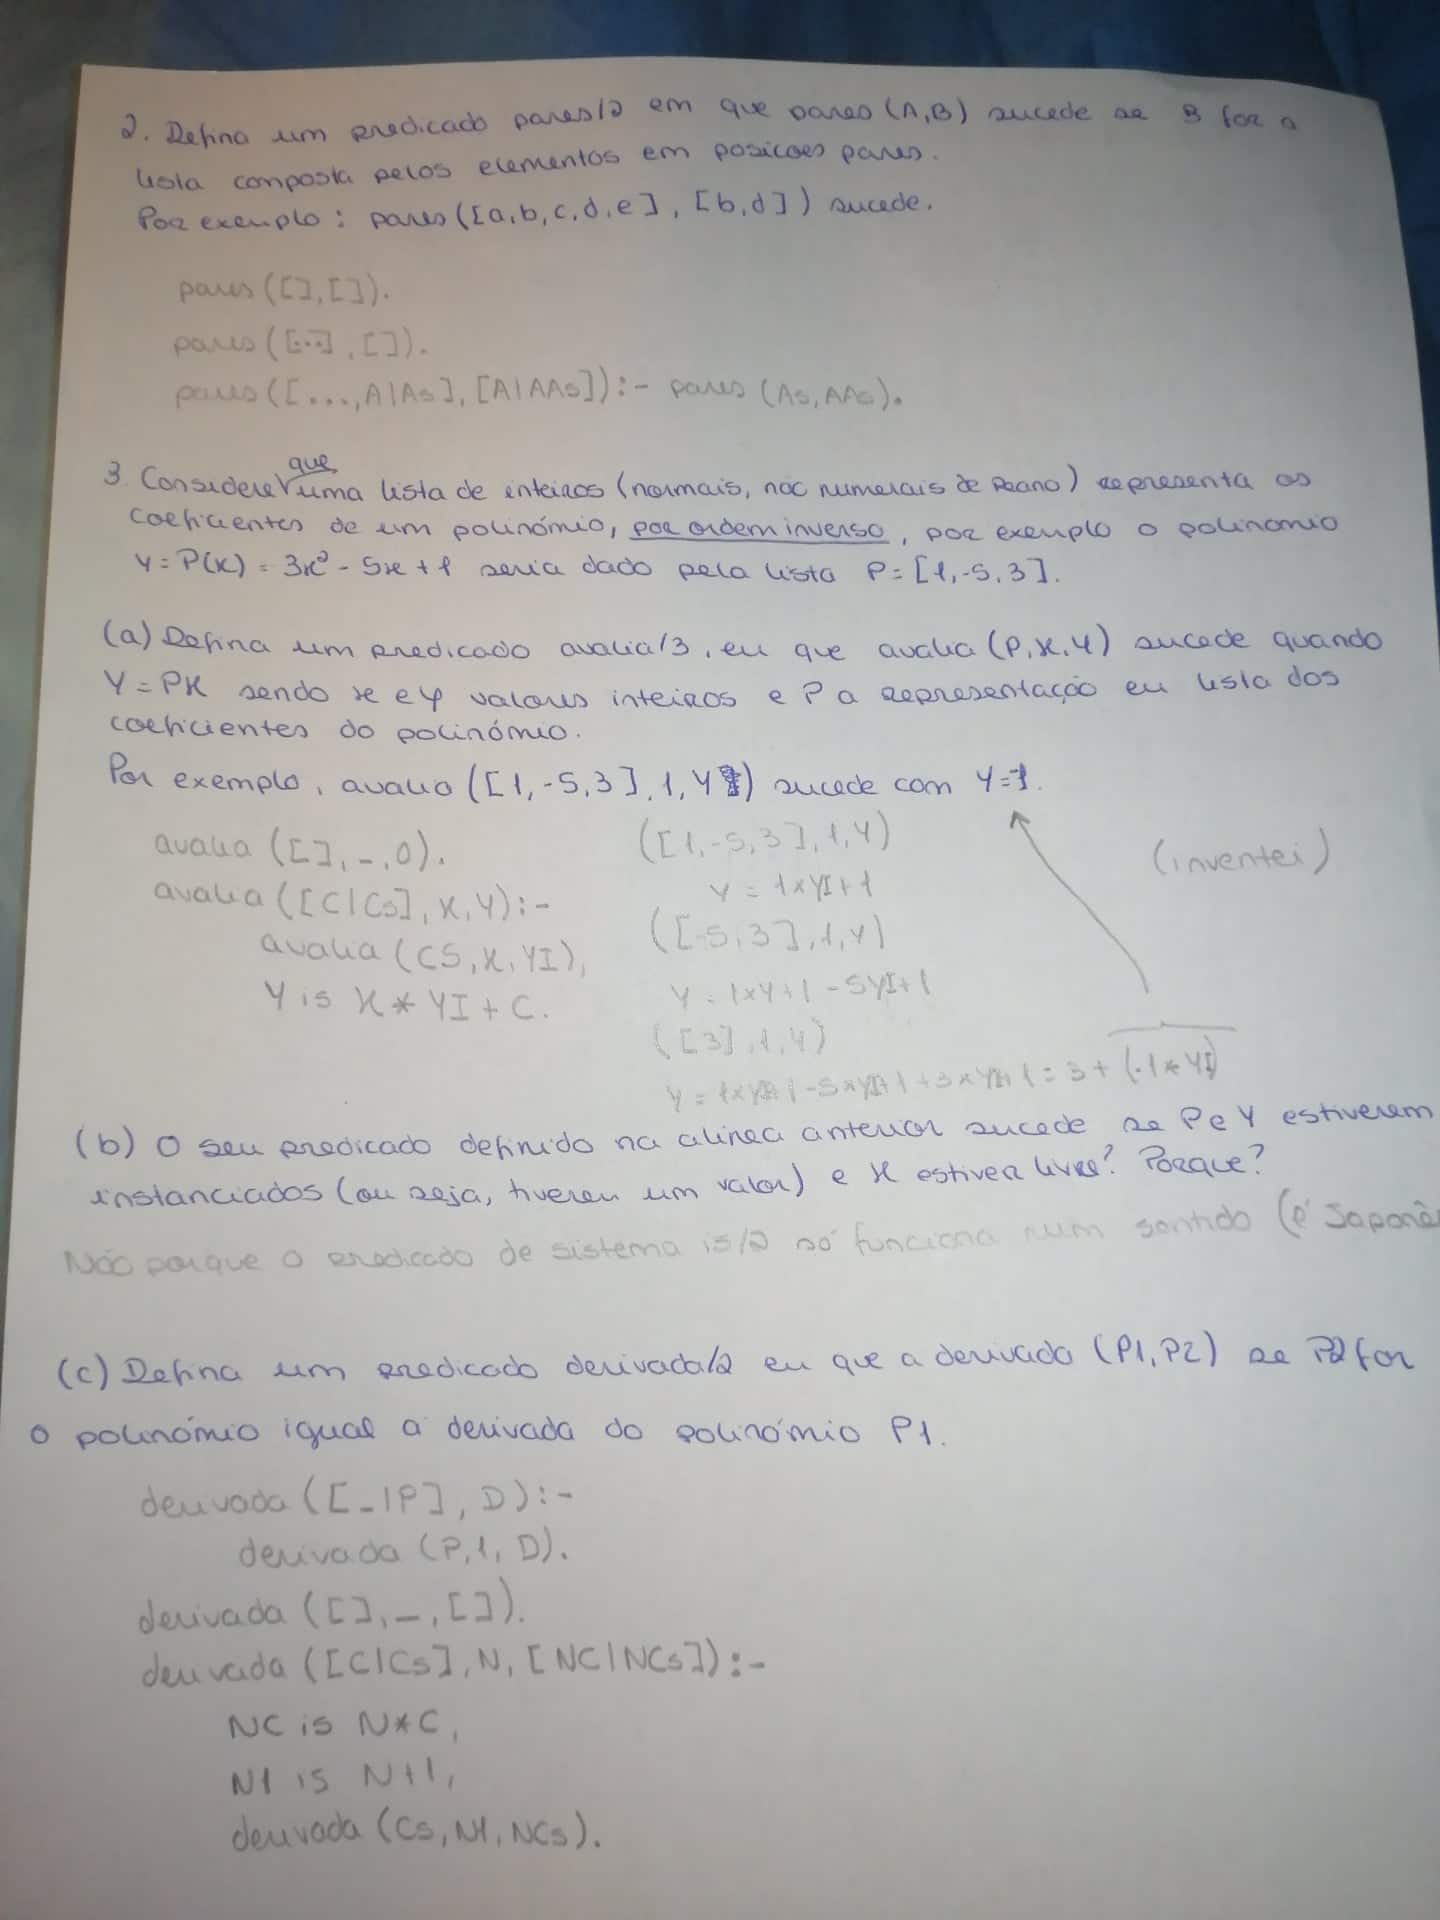 2. Defina um predicado pares/2 em que pares (A,B) sucede se B for a
lista composta pelos elementos em posicoes pares.
Por exemplo: pares ([a,b,c,d,e], [b,d]) sucede.
pares ([], []).
pares ([...], []).
pares ([...,A|As], [A|AAs]):- pares (As, AAs).
3. Considere que uma lista de inteiros (normais, não numerais de Peano) representa os
coeficientes de um polinómio, por ordem inverso, por exemplo o polinomio
Y=P(x) = 3x² - 5x + 1 seria dado pela lista P= [1,-5,3].
(a) Defina um predicado avalia/3, eu que avalia (P,X,Y) sucede quando
Y=PX sendo x e y valores inteiros e P a representação eu lista dos
coeficientes do polinómio.
Por exemplo, avalia ([1,-5,3], 1, Y) sucede com Y=-1.
avalia ([], _, 0).
avalia ([C|Cs], X, Y):-
avalia (CS, X, YI),
Y is X * YI + C.
([1,-5,3], 1, Y)
Y = 1xYI + 1
([-5,3], 1, Y)
Y = 1xY+1 - 5YI+1
([3], 1, Y)
= 3 + (-1 * YI)
(inventei)
(b) O seu predicado definido na alinea anterior sucede se P e Y estiverem
instanciados (ou seja, tiverem um valor) e X estiver livre? Porque?
Não porque o predicado de sistema is/2 só funciona num sentido (é Japonê
(c) Defina um predicado derivada/2 eu que a derivada (P1, P2) se P2 for
o polinómio igual a derivada do polinómio P1.
derivada ([_|P], D):-
derivada (P, 1, D).
derivada ([], _, []).
derivada ([C|Cs], N, [NC|NCs]):-
NC is N*C,
N1 is N+1,
derivada (Cs, N1, NCs).